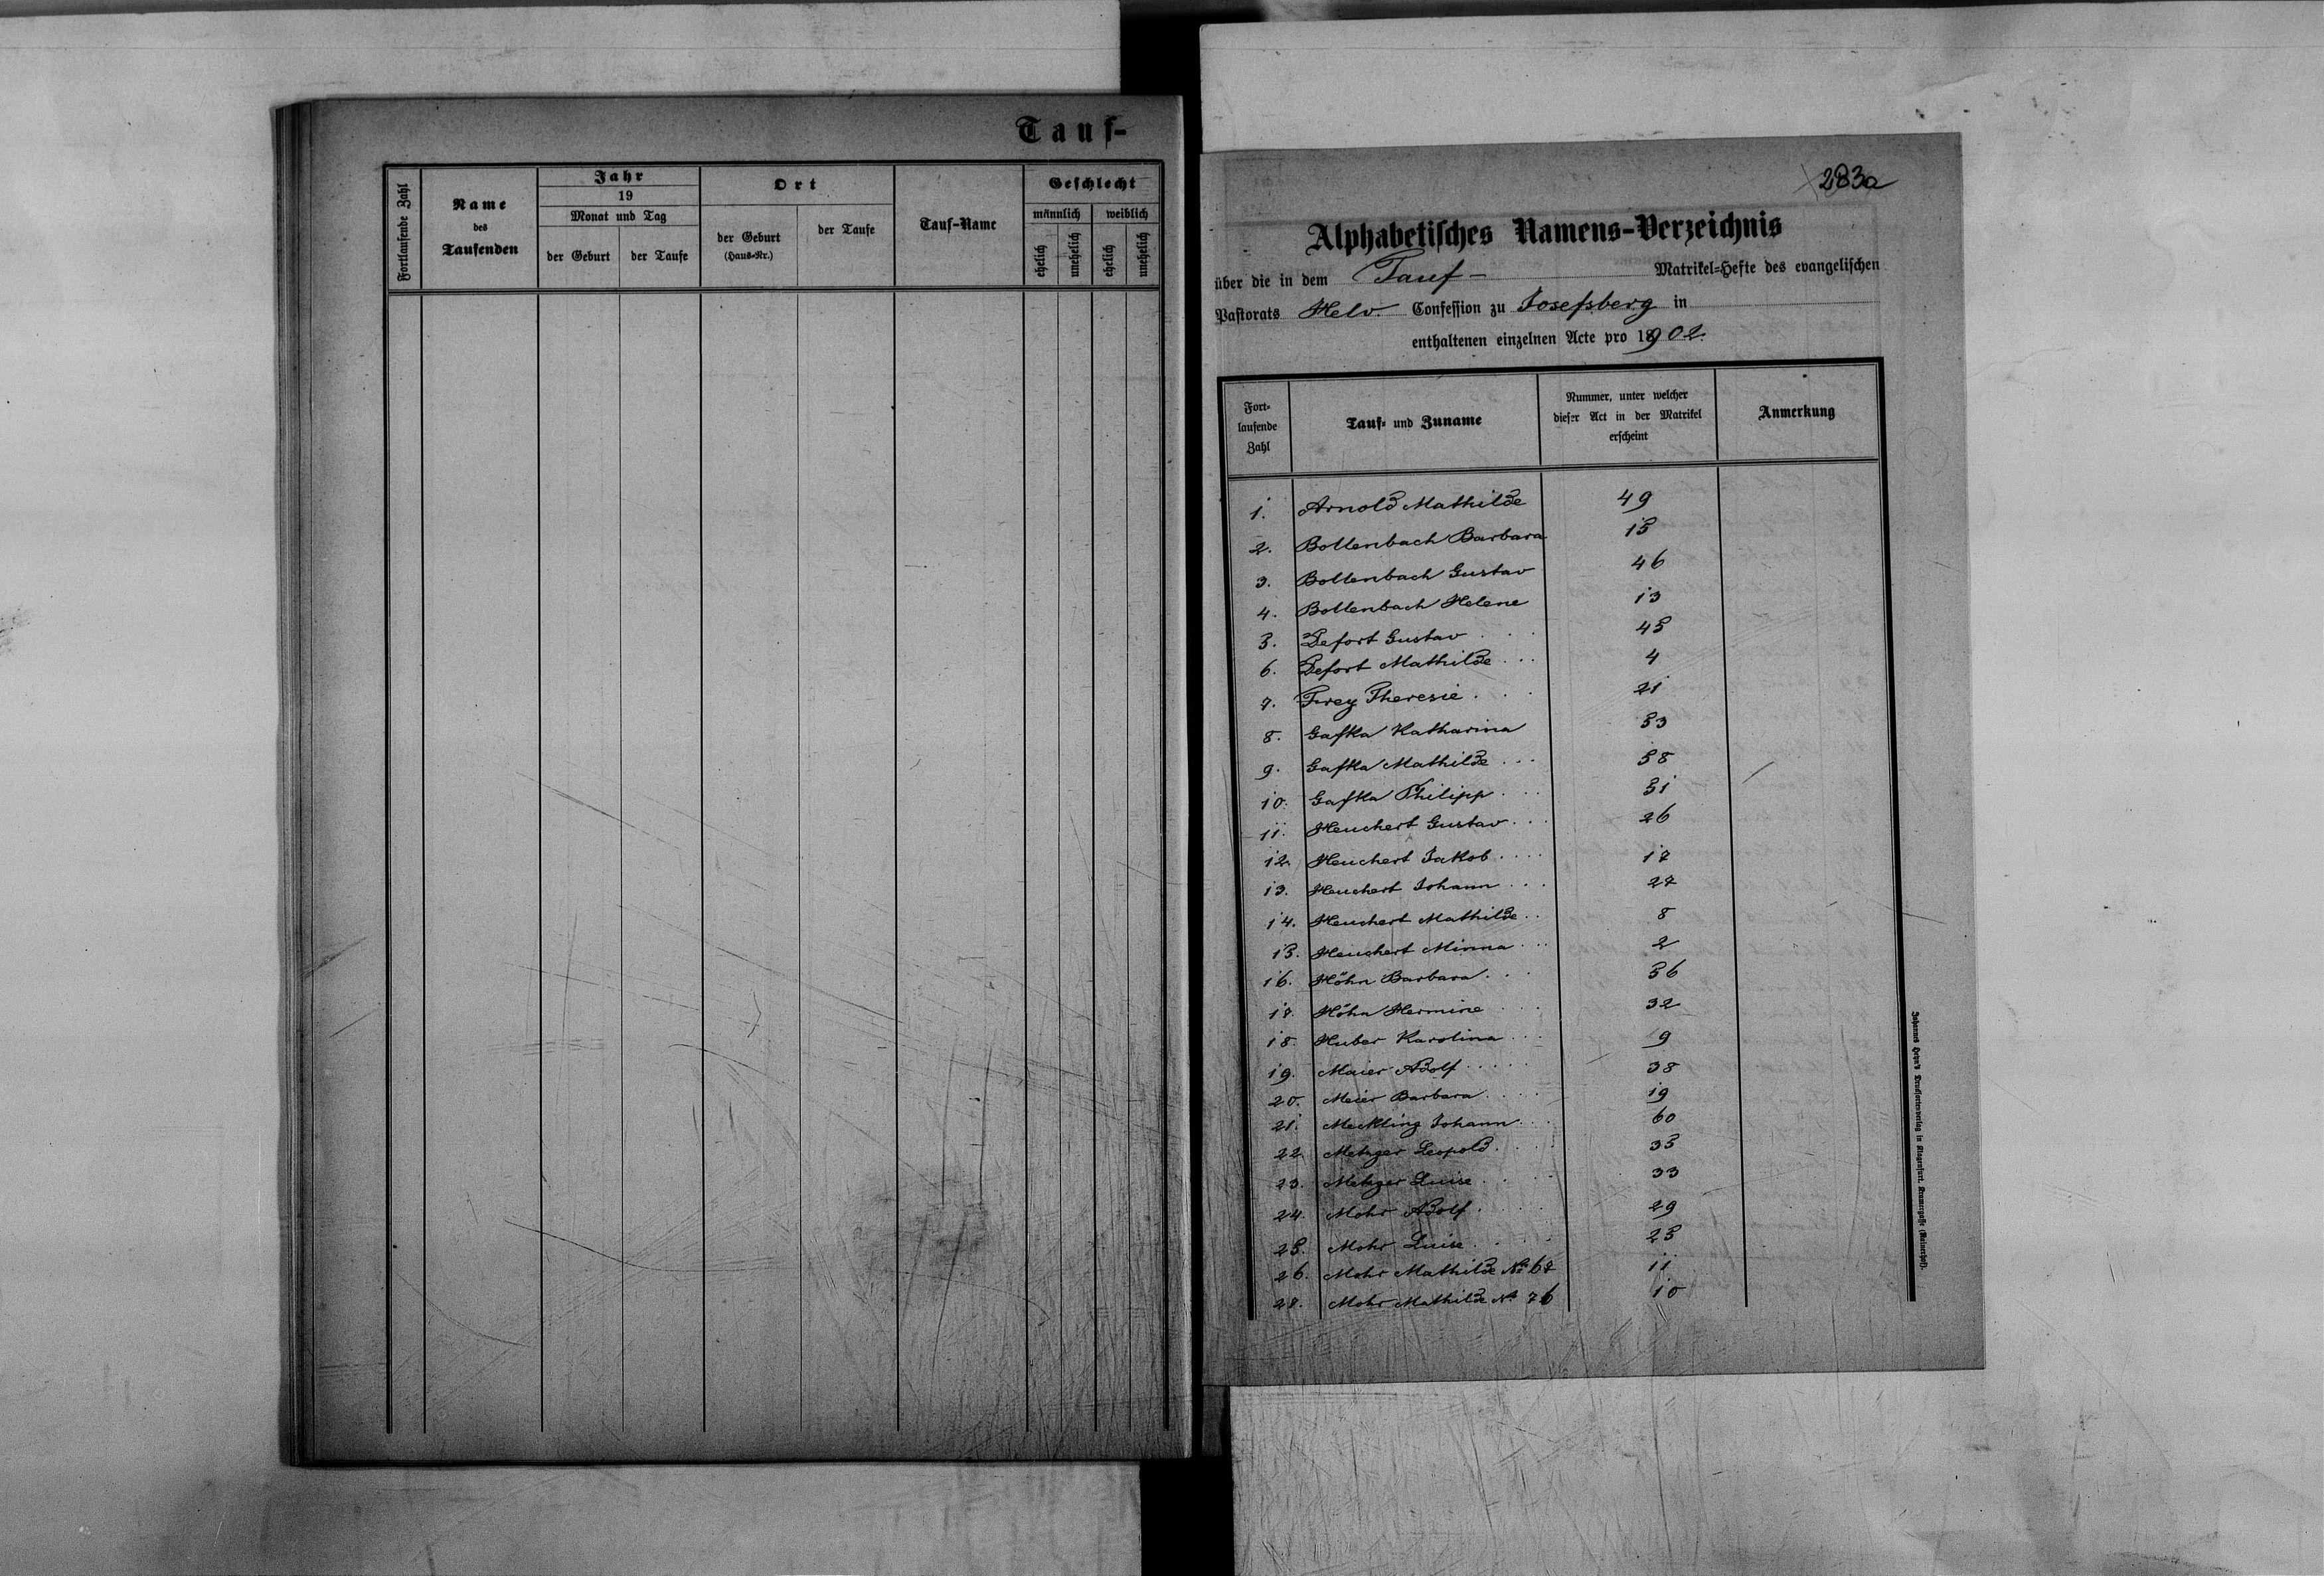 Tauf-
Fortlaufende Zahl
Name
des
Taufenden
Jahr
19
Monat und Tag
der Geburt
der Taufe
Ort
der Geburt
(Haus-Nr.)
der Taufe
Tauf-Name
Geschlecht
männlich
weiblich
ehelich
unehelich
ehelich
unehelich
283a
Alphabetisches Namens-Verzeichnis
über die in dem Tauf- Matrikel-Hefte des evangelischen
Pastorats Helv. Confession zu Josefsberg in
enthaltenen einzelnen Acte pro 1902.
Fort-
laufende
Zahl
Tauf- und Zuname
Nummer, unter welcher
dieser Act in der Matrikel
erscheint
Anmerkung
1. Arnold Mathilde 49
2. Bollenbach Barbara 15
3. Bollenbach Gustav 46
4. Bollenbach Helene 13
5. Defort Gustav . . . 45
6. Defort Mathilde . . . 4
7. Frey Theresie . . . 21
8. Gafka Katharina 53
9. Gafka Mathilde . . . 58
10. Gafka Philipp . . . 51
11. Heuchert Gustav . . . 26
12. Heuchert Jakob . . . . 17
13. Heuchert Johann . . . 27
14. Heuchert Mathilde . . 8
15. Heuchert Minna . . . 2
16. Höhn Barbara . . . 56
17. Höhn Hermine . . . 32
18. Huber Karolina . . . 9
19. Maier Adolf . . . . . 38
20. Meier Barbara . . . . 19
21. Meckling Johann . . . 60
22. Metzger Leopold . . . . 35
23. Metzger Luise . . . . 33
24. Mohr Adolf . . . . 29
25. Mohr Luise . . . . 25
26. Mohr Mathilde No 67 11
27. Mohr Mathilde No 76 10